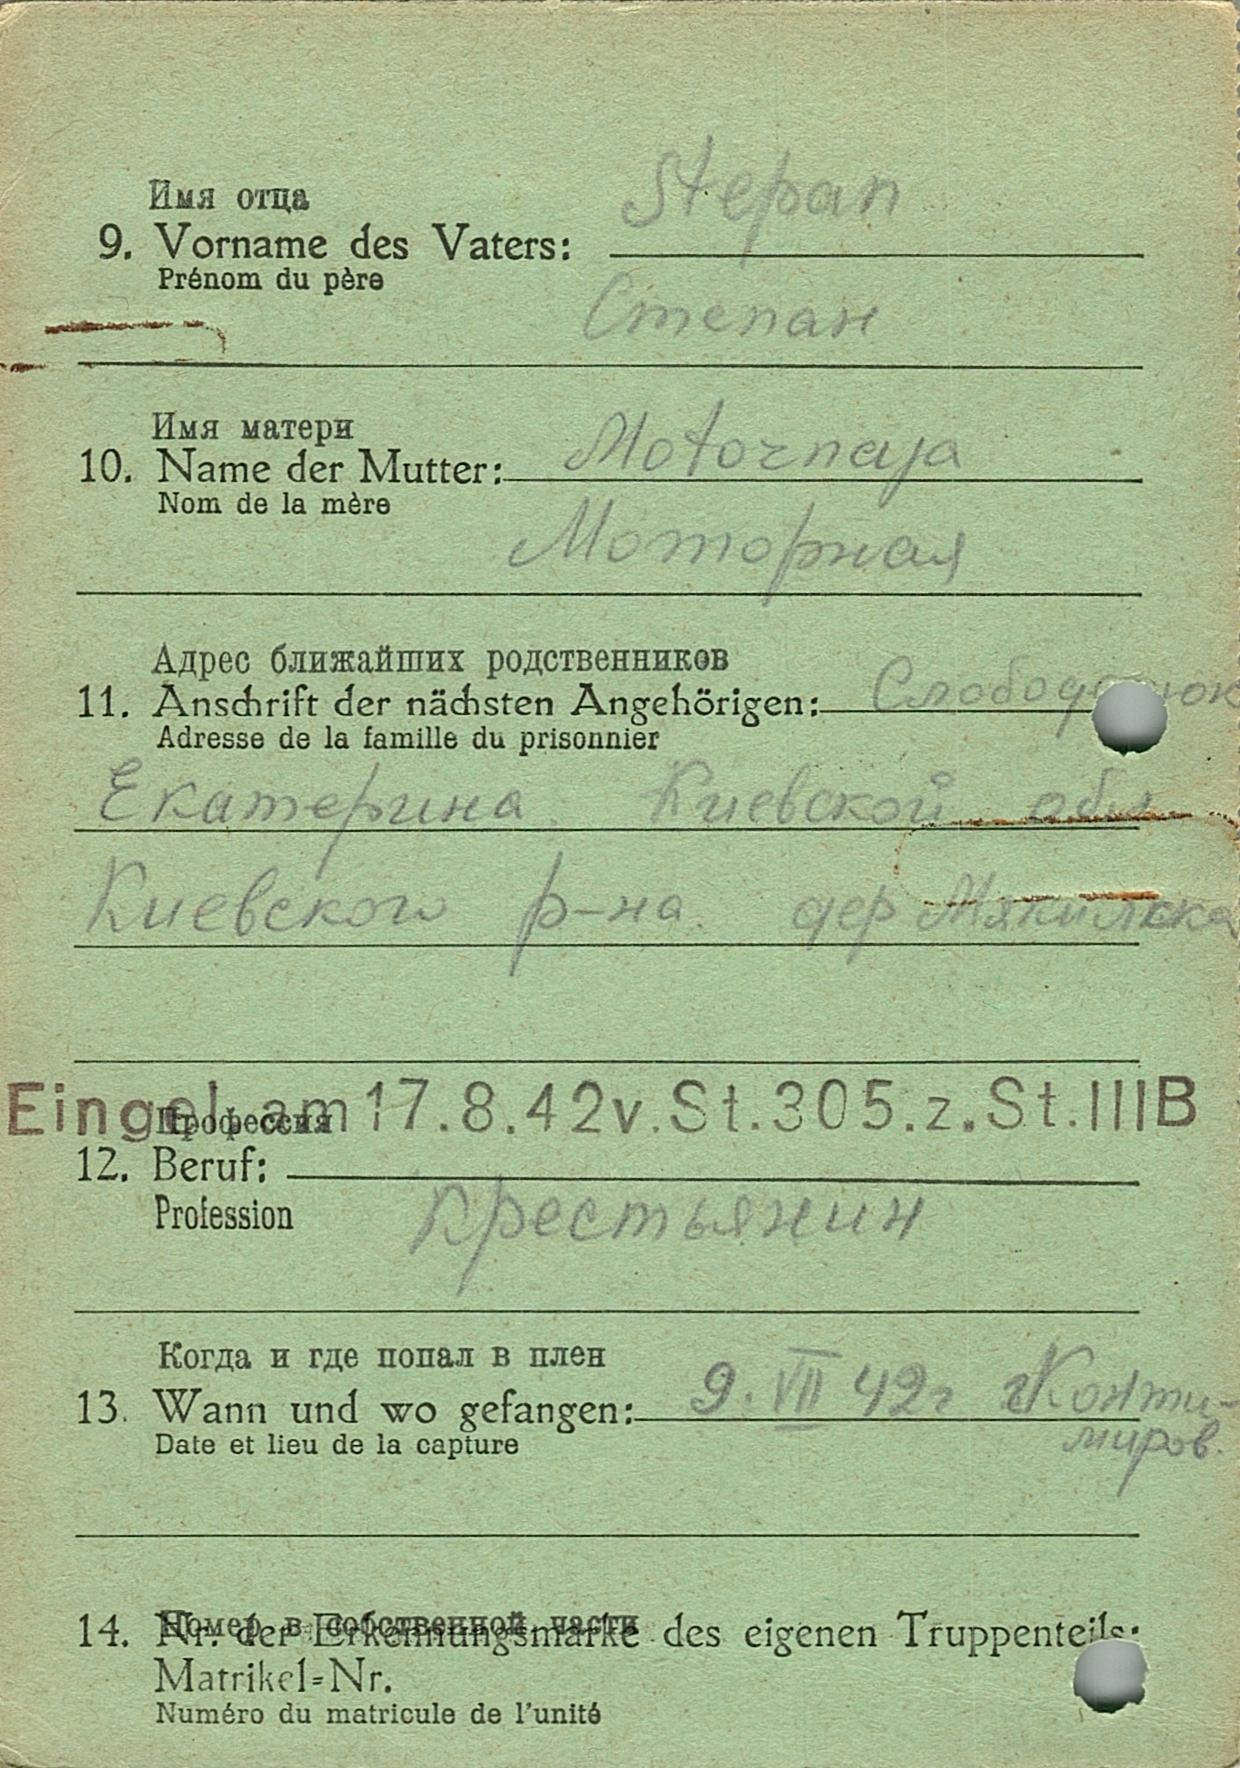 Stepan
Имя отца
9. Vorname des Vaters:
Prénom du père
Степан
Имя матери
Motornaja
10. Name der Mutter:
Nom de la mère
Моторная
Адрес ближайших родственников
11. Anschrift der nächsten Angehörigen:
Adresse de la famille du prisonnier
Екатерина Киевской обл
Киевского р-на. дер
Eingel. am 17.8.42 v. St. 305. z. St. IIIB
Профессия
12. Beruf:
Profession
Крестьянин
Когда и где попал в плен
13. Wann und wo gefangen: 9. VII 42г г Конти-
миров.
Date et lieu de la capture
Номер в собственной части
14. Nr. der Erkennungsmarke des eigenen Truppenteils:
Matrikel=Nr.
Numéro du matricule de l'unité